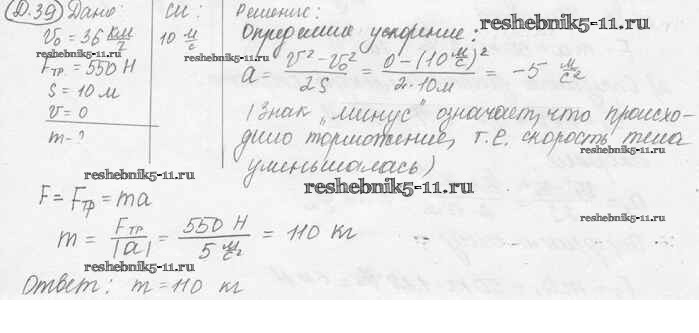 Д.39) Дано: СИ: Решение:
V₀ = 36 км/ч 10 м/с Определим ускорение:
Fтр. = 550 Н
S = 10 м
V = 0
m - ?
a = (V² - V₀²)/2S = (0 - (10 м/с)²)/(2·10м) = -5 м/с²
(Знак „минус" означает, что происхо-
дило торможение, т.е. скорость тела
уменьшалась)
F = Fтр = ma
m = Fтр/|a| = 550 Н/(5 м/с²) = 110 кг
Ответ: m = 110 кг
reshebnik5-11.ru
reshebnik5-11.ru
reshebnik5-11.ru
reshebnik5-11.ru
reshebnik5-11.ru
reshebnik5-11.ru
reshebnik5-11.ru
reshebnik5-11.ru